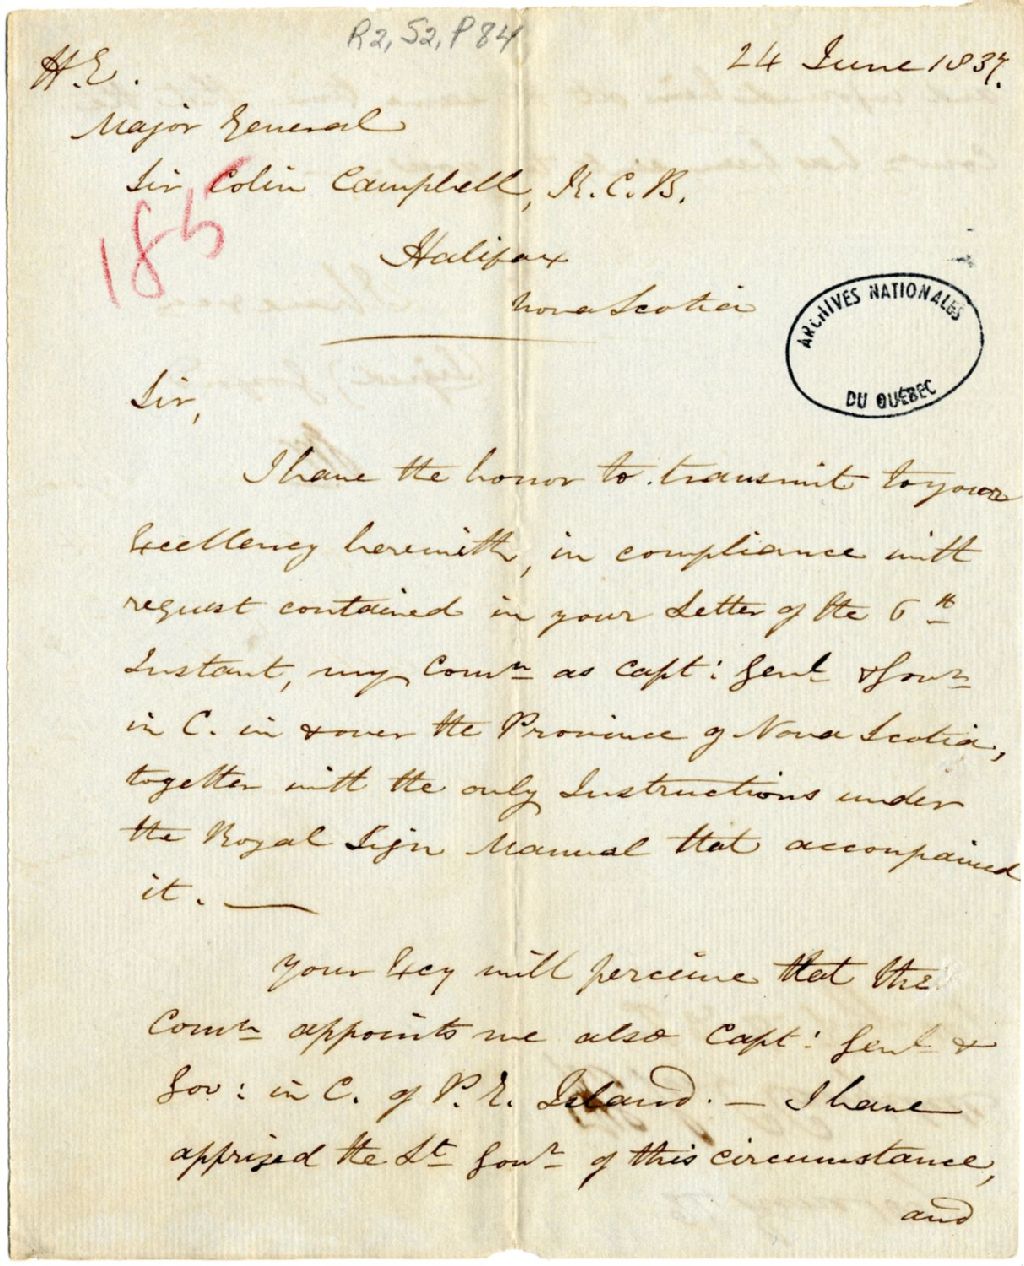 R2, S2, P84
24 June 1837.
H.E.
Major General
Sir Colin Campbell, K.C.B.
185
Halifax
Nova Scotia
ARCHIVES NATIONALES
DU QUÉBEC
Sir,
I have the honor to transmit to your
Excellency herewith, in compliance with
request contained in your Letter of the 6th
Instant, my Comn as Capt: Genl & Govr
in C. in & over the Province of Nova Scotia,
together with the only Instructions under
the Royal Sign Manual that accompanied
it. —
Your Excy will perceive that the
Comn appoints me also Capt: Genl &
Gov: in C. of P. E. Island. — I have
apprized the Lt Govr of this circumstance,
and